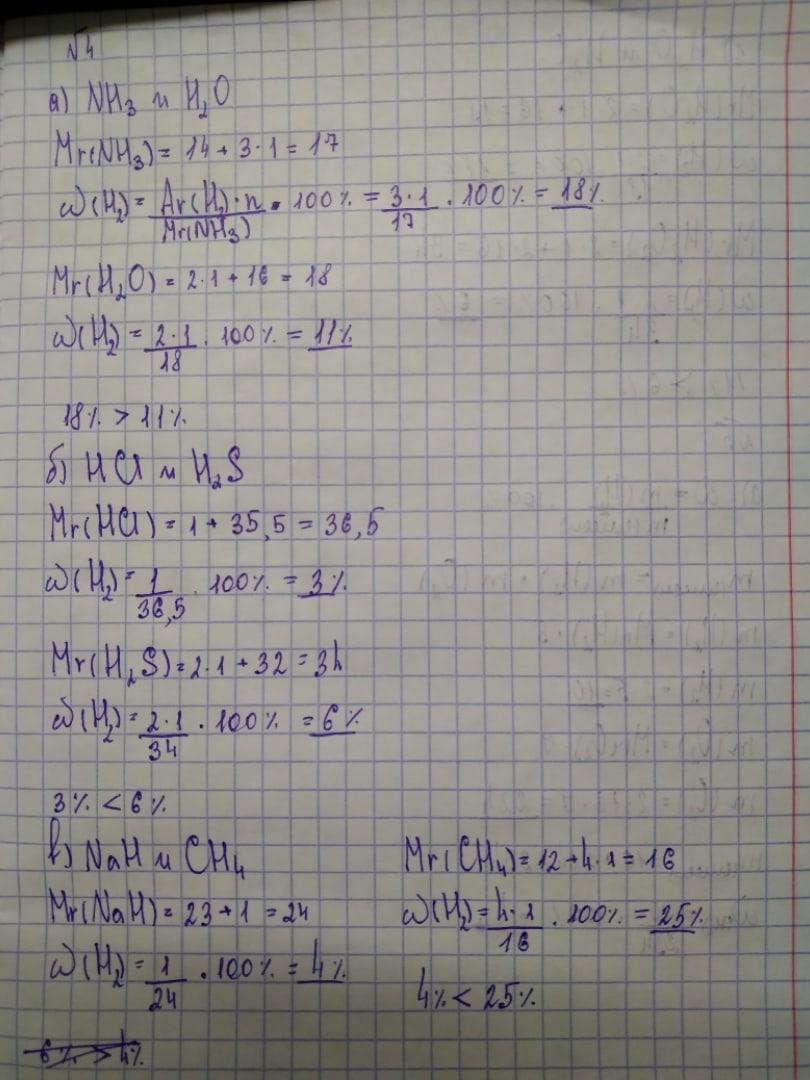 №4
а) NH₃ и H₂O
Mr(NH₃) = 14 + 3·1 = 17
ω(H₂) = Ar(H₂)·n / Mr(NH₃) · 100% = 3·1 / 17 · 100% = 18%
Mr(H₂O) = 2·1 + 16 = 18
ω(H₂) = 2·1 / 18 · 100% = 11%
18% > 11%
б) HCl и H₂S
Mr(HCl) = 1 + 35,5 = 36,5
ω(H₂) = 1 / 36,5 · 100% = 3%
Mr(H₂S) = 2·1 + 32 = 34
ω(H₂) = 2·1 / 34 · 100% = 6%
3% < 6%
в) NaH и CH₄
Mr(NaH) = 23 + 1 = 24
ω(H₂) = 1 / 24 · 100% = 4%
6% > 4%
Mr(CH₄) = 12 + 4·1 = 16
ω(H₂) = 4·1 / 16 · 100% = 25%
4% < 25%